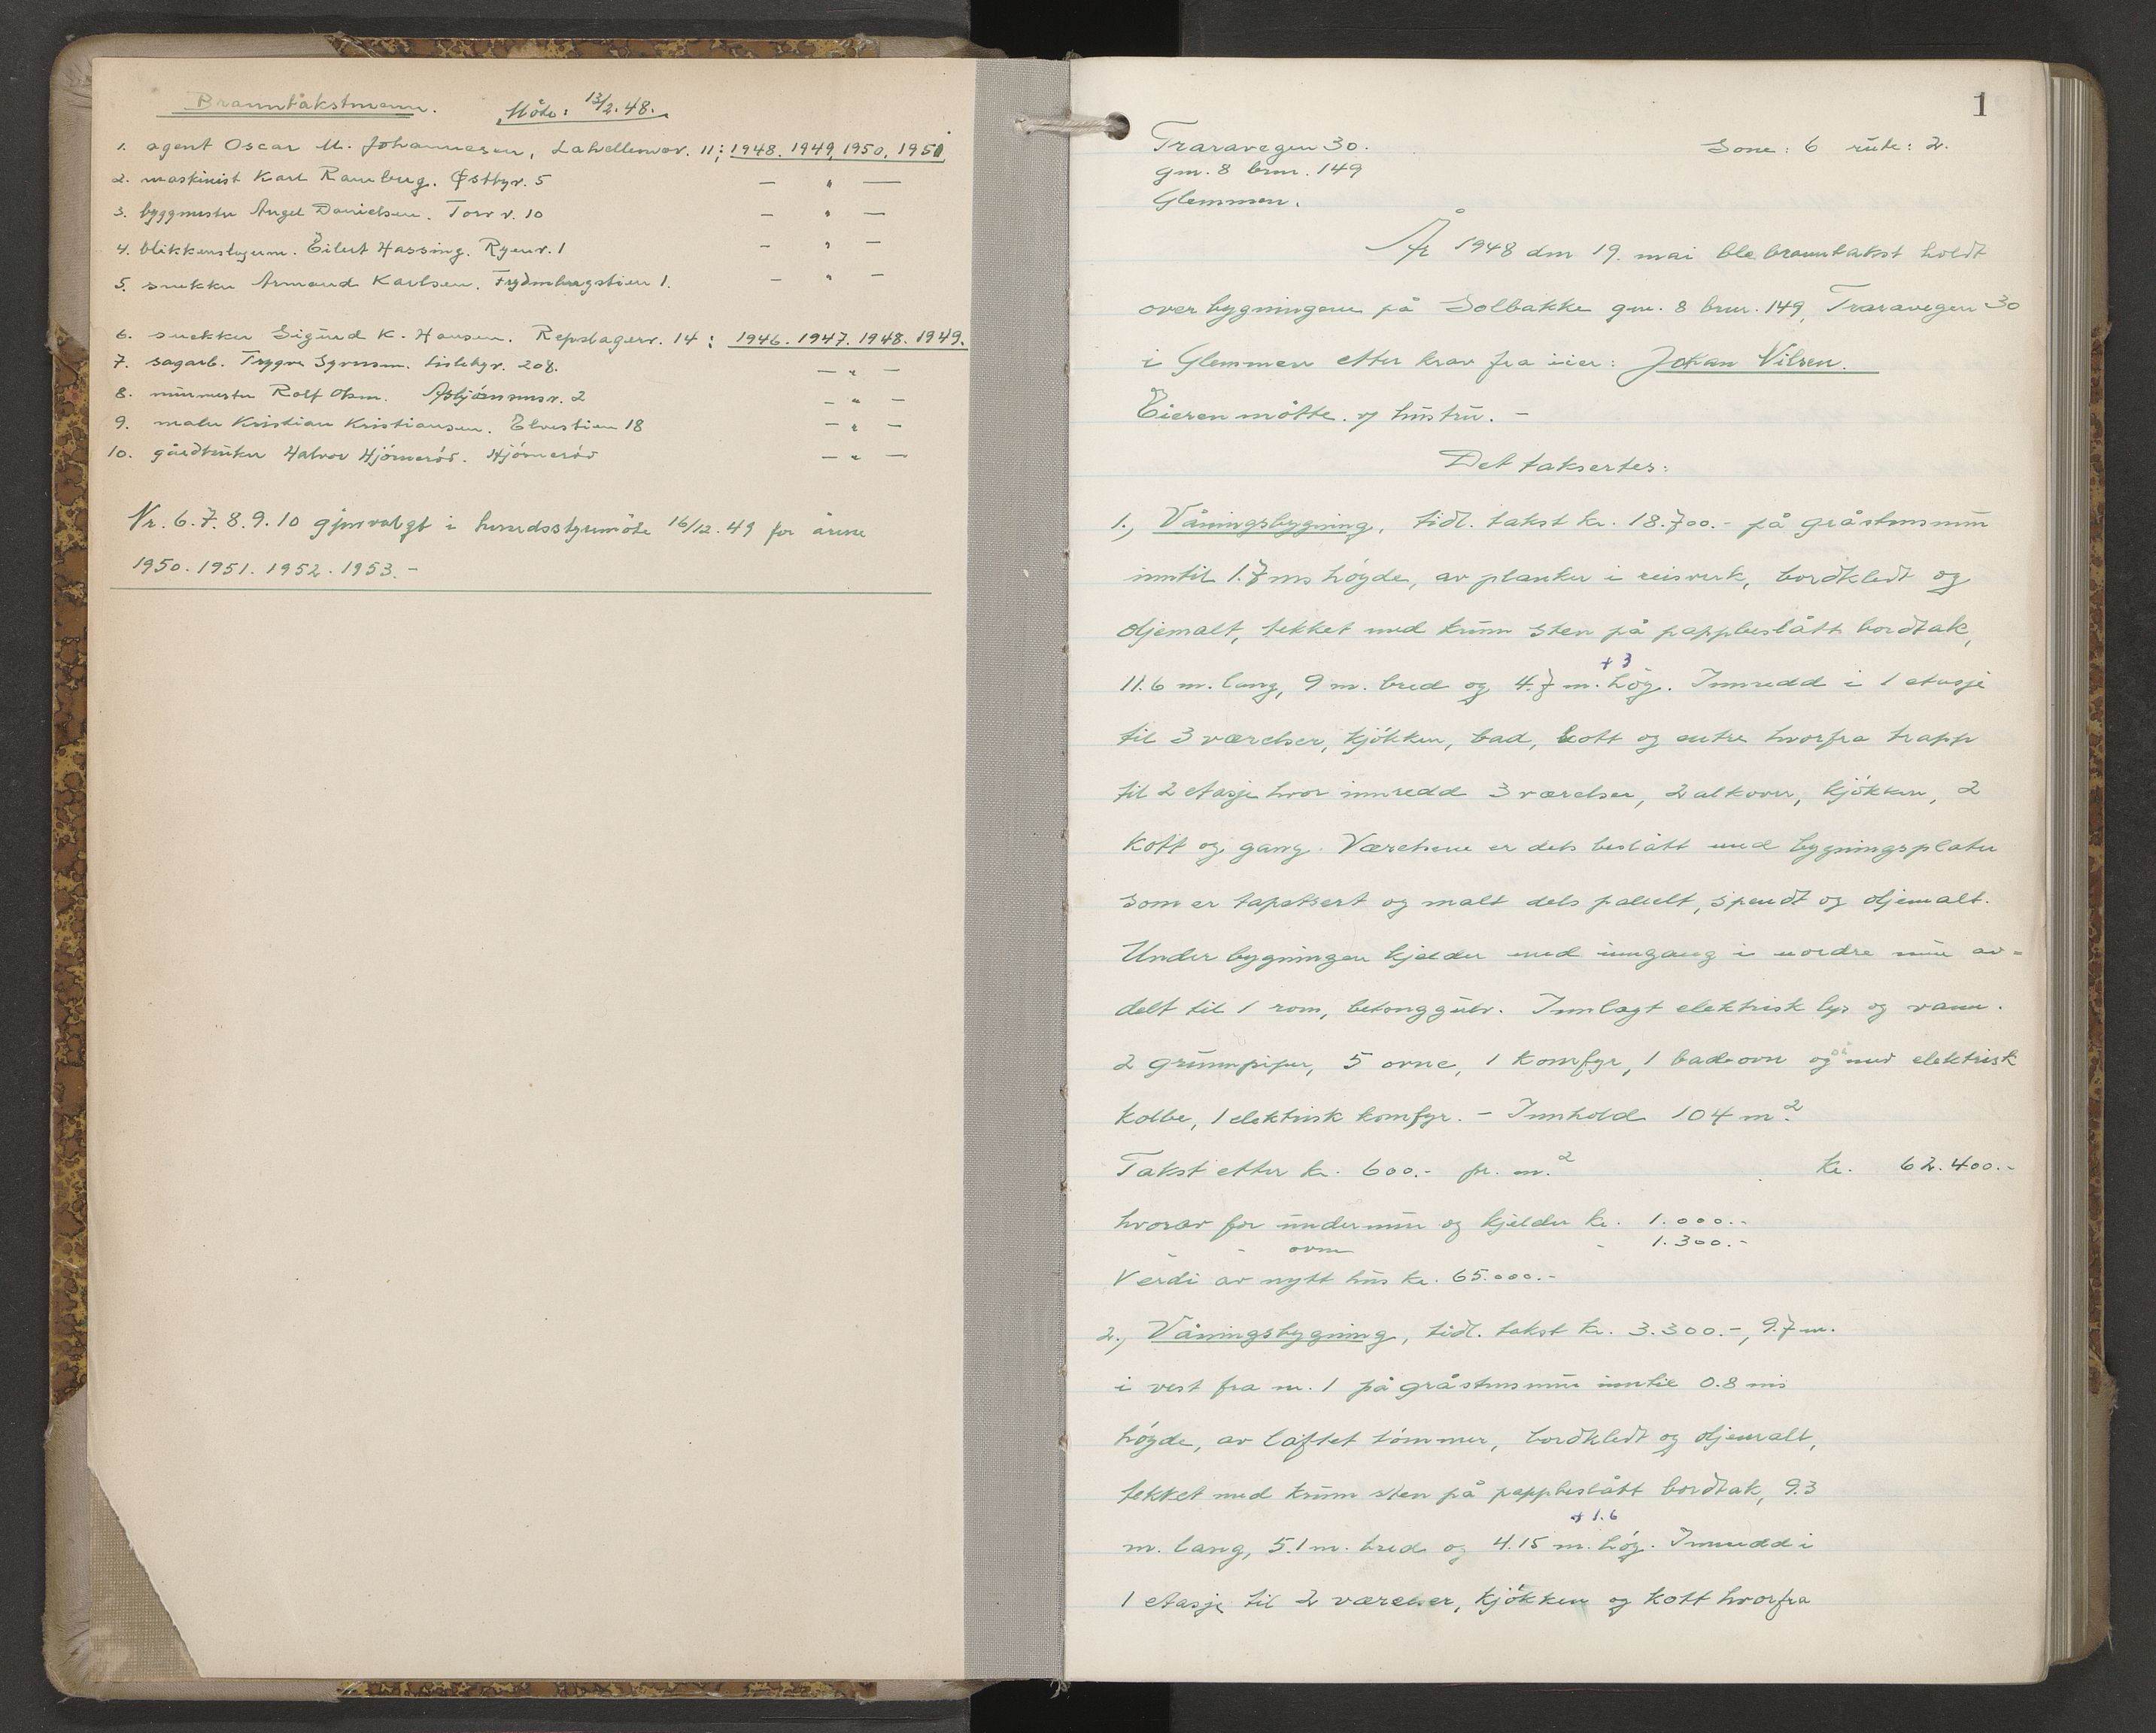 Branntakstmenn. Møte: 13/2.48.
1. agent Oscar M. Johannesen, Lahellemsv. 11; 1948. 1949. 1950. 1951
2. maskinist Karl Ramberg. Østbyv. 5 — " —
3. byggmester Angel Danielsen. Torv v. 10 — " —
4. blikkenslagerm. Eilert Hassing. Ryenv. 1 — " —
5. snekker Armand Karlsen. Frydenbergstien 1. — " —
6. snekker Sigurd K. Hansen. Repslagerv. 14: 1946. 1947. 1948. 1949.
7. sagarb. Trygve Syversen. Lislebyv. 208. — " —
8. murmester Rolf Olsen. Asbjørnsensv. 2 — " —
9. maler Kristian Kristiansen. Elvestien 18 — " —
10. gårdbruker Halvor Hjørnerød. Hjørnerød — " —
Nr. 6. 7. 8. 9. 10 gjenvalgt i herredsstyremøte 16/12.49 for årene
1950. 1951. 1952. 1953. -
1
Traravegen 30. Sone: 6 rute: 2.
gnr. 8 brnr. 149
Glemmen.
År 1948 den 19. mai ble branntakst holdt
over bygningene på Solbakke gnr. 8 brnr. 149, Traravegen 30
i Glemmen etter krav fra eier: Johan Nilsen.
Eieren møtte. og hustru. -
Det taksertes:
1., Våningsbygning, tidl. takst kr. 18.700.- på gråstensmur
inntil 1.7 ms høyde, av planker i reisverk, bordkledt og
oljemalt, tekket med krum sten på pappbeslått bordtak,
+ 3
11.6 m. lang, 9 m. bred og 4.7 m. høg. Innredd i 1 etasje
til 3 værelser, kjøkken, bad, kott og entre hvorfra trapp
til 2 etasje hvor innredd 3 værelser, 2 alkover, kjøkken, 2
kott og gang. Værelsene er dels beslått med bygningsplater
som er tapetsert og malt dels panelt, spendt og oljemalt.
Under bygningen kjelder med inngang i nordre mur av=
delt til 1 rom, betonggulv. Innlagt elektrisk lys og vann.
2 grunnpiper, 5 ovne, 1 komfyr, 1 badeovn og med elektrisk
kolbe, 1 elektrisk komfyr. - Innhold 104 m.2
Takst etter kr. 600.- pr. m.2 kr. 62.400.-
hvorav for undermur og kjelder kr. 1.000.-
- - ovne - 1.300.-
Verdi av nytt hus kr. 65.000.-
2., Våningsbygning, tidl. takst kr. 3.300.-, 9.7 m.
i vest fra nr. 1 på gråstensmur inntil 0.8 ms
høyde, av laftet tømmer, bordkledt og oljemalt,
tekket med krum sten på pappbeslått bordtak, 9.3
+ 1.6
m. lang, 5.1 m. bred og 4.15 m. høg. Innredd i
1 etasje til 2 værelser, kjøkken og kott hvorfra